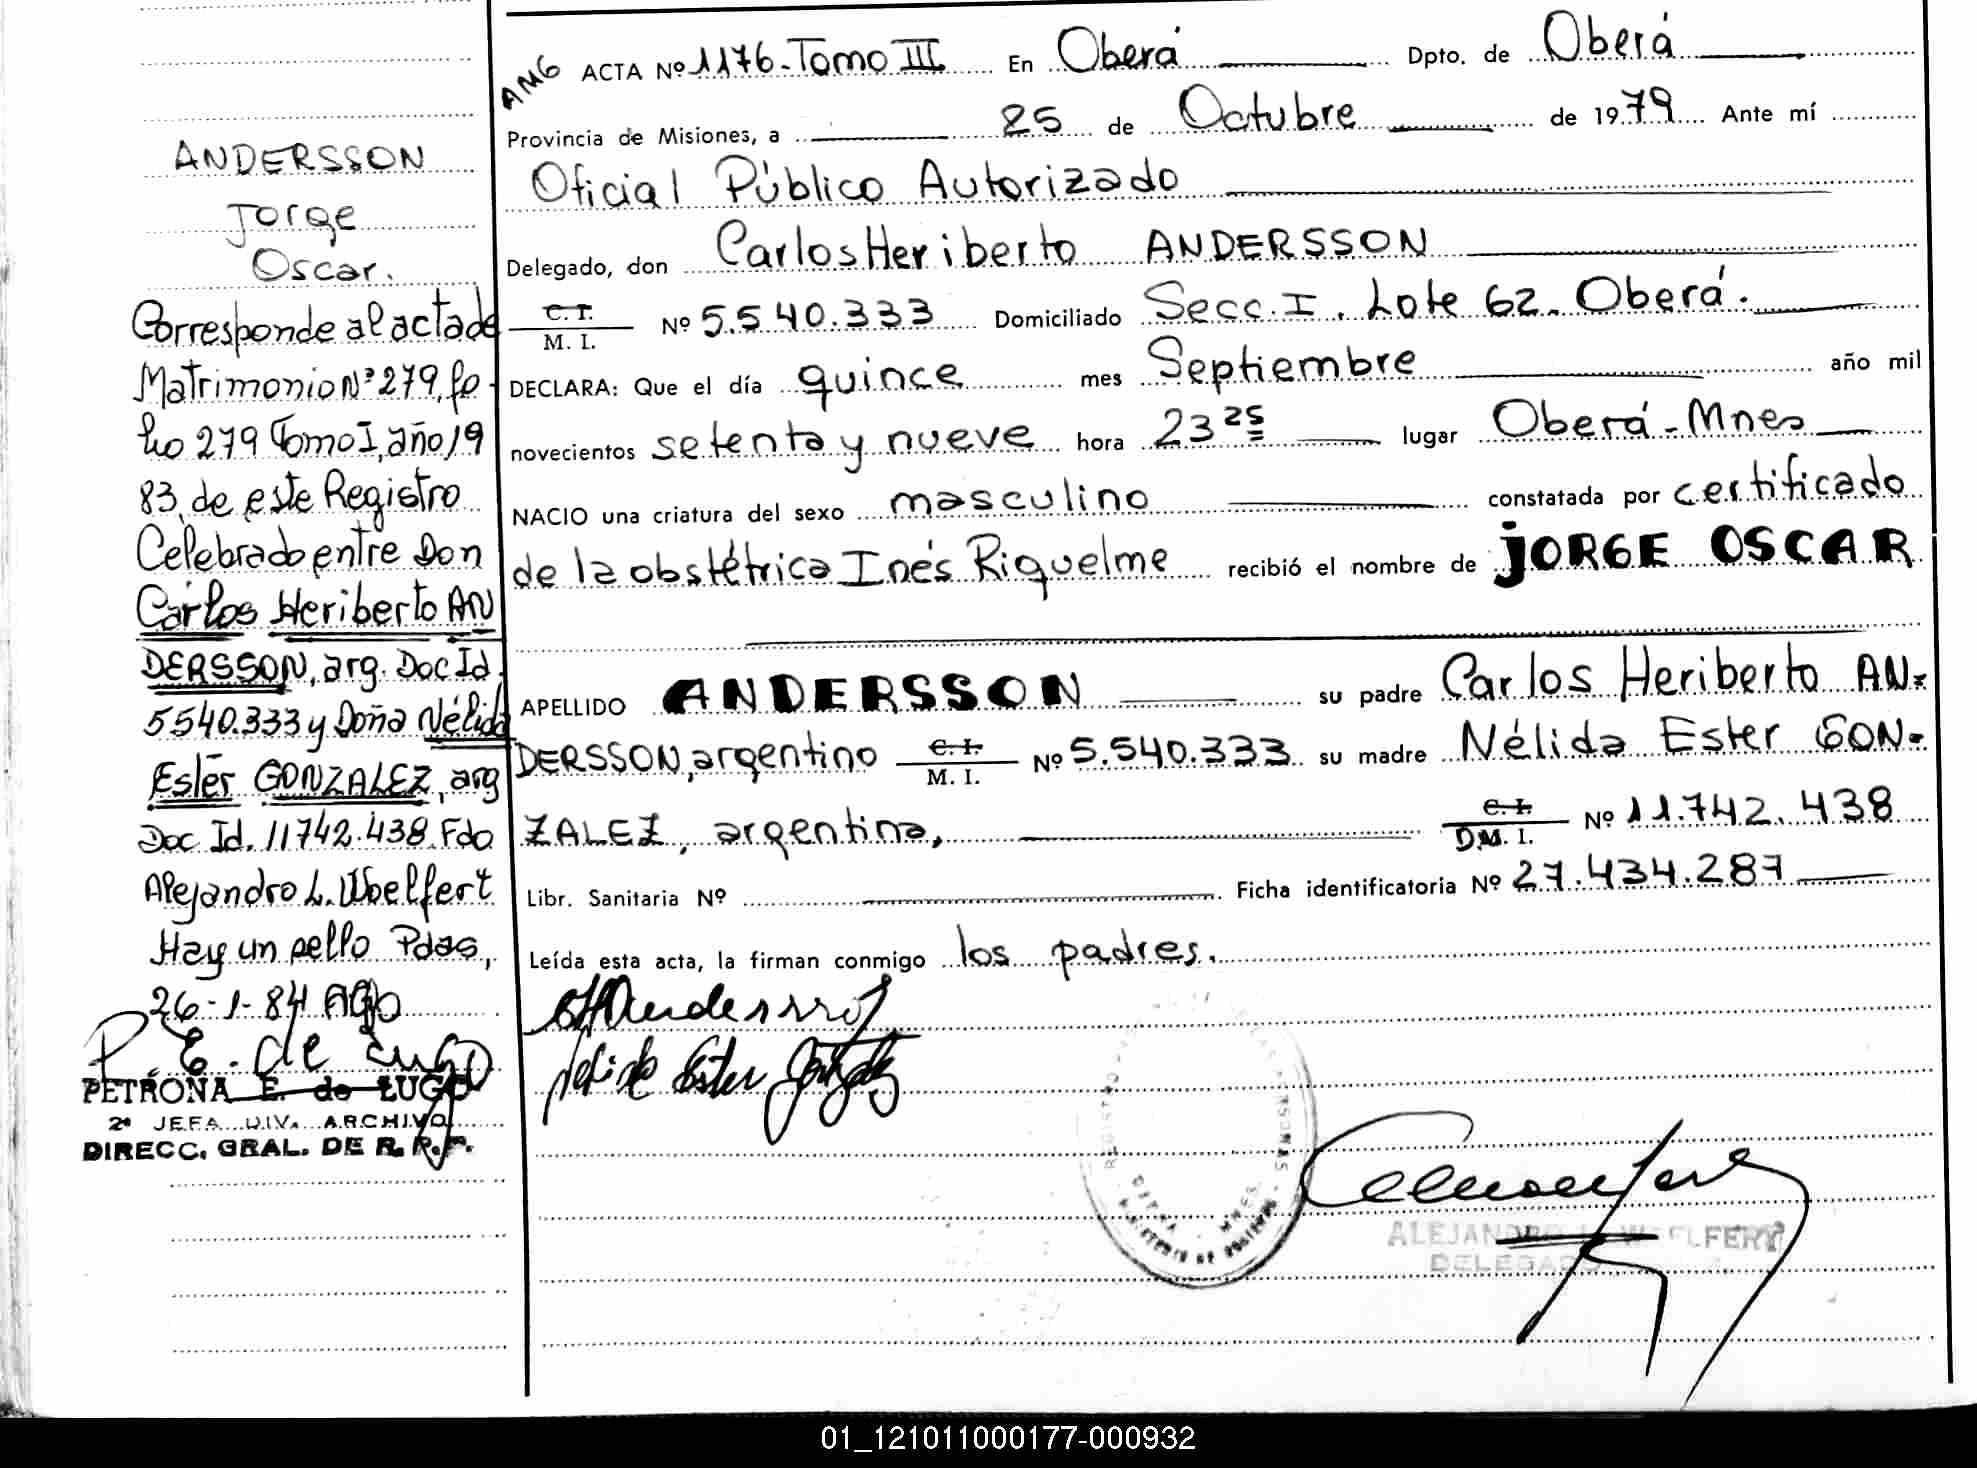 ANDERSSON
Jorge
Oscar.
Corresponde al acta de
Matrimonio Nº 279, fo-
lio 279 Tomo I, año 19
83, de este Registro
Celebrado entre Don
Carlos Heriberto AN
DERSSON, arg. Doc Id.
5540.333 y Doña Nélida
Ester GONZALEZ, arg
Doc Id. 11742.438. Fdo
Alejandro L. Woelfert
Hay un sello Pdas,
26-1-84
P. E. de Lugo
PETRONA E. de LUGO
2ª JEFA DIV. ARCHIVO
DIRECC. GRAL. DE R. R. P.
AMG ACTA Nº 1176-Tomo III En Oberá Dpto. de Oberá
Provincia de Misiones, a 25 de Octubre de 1979 Ante mí
Oficial Público Autorizado
Delegado, don Carlos Heriberto ANDERSSON
C. I. M. I. Nº 5.540.333 Domiciliado Secc. I. Lote 62. Oberá.
DECLARA: Que el día quince mes Septiembre año mil
novecientos setenta y nueve hora 23 25 lugar Oberá-Mnes
NACIO una criatura del sexo masculino constatada por certificado
de la obstétrica Inés Riquelme recibió el nombre de JORGE OSCAR
APELLIDO ANDERSSON su padre Carlos Heriberto AN-
DERSSON, argentino C. I. M. I. Nº 5.540.333 su madre Nélida Ester GON-
ZALEZ, argentina, C. I. D.M. I. Nº 11.742.438
Libr. Sanitaria Nº Ficha identificatoria Nº 27.434.287
Leída esta acta, la firman conmigo los padres.
Nelida Ester González
ALEJANDRO L. WOELFERT
DELEGADO
01_121011000177-000932